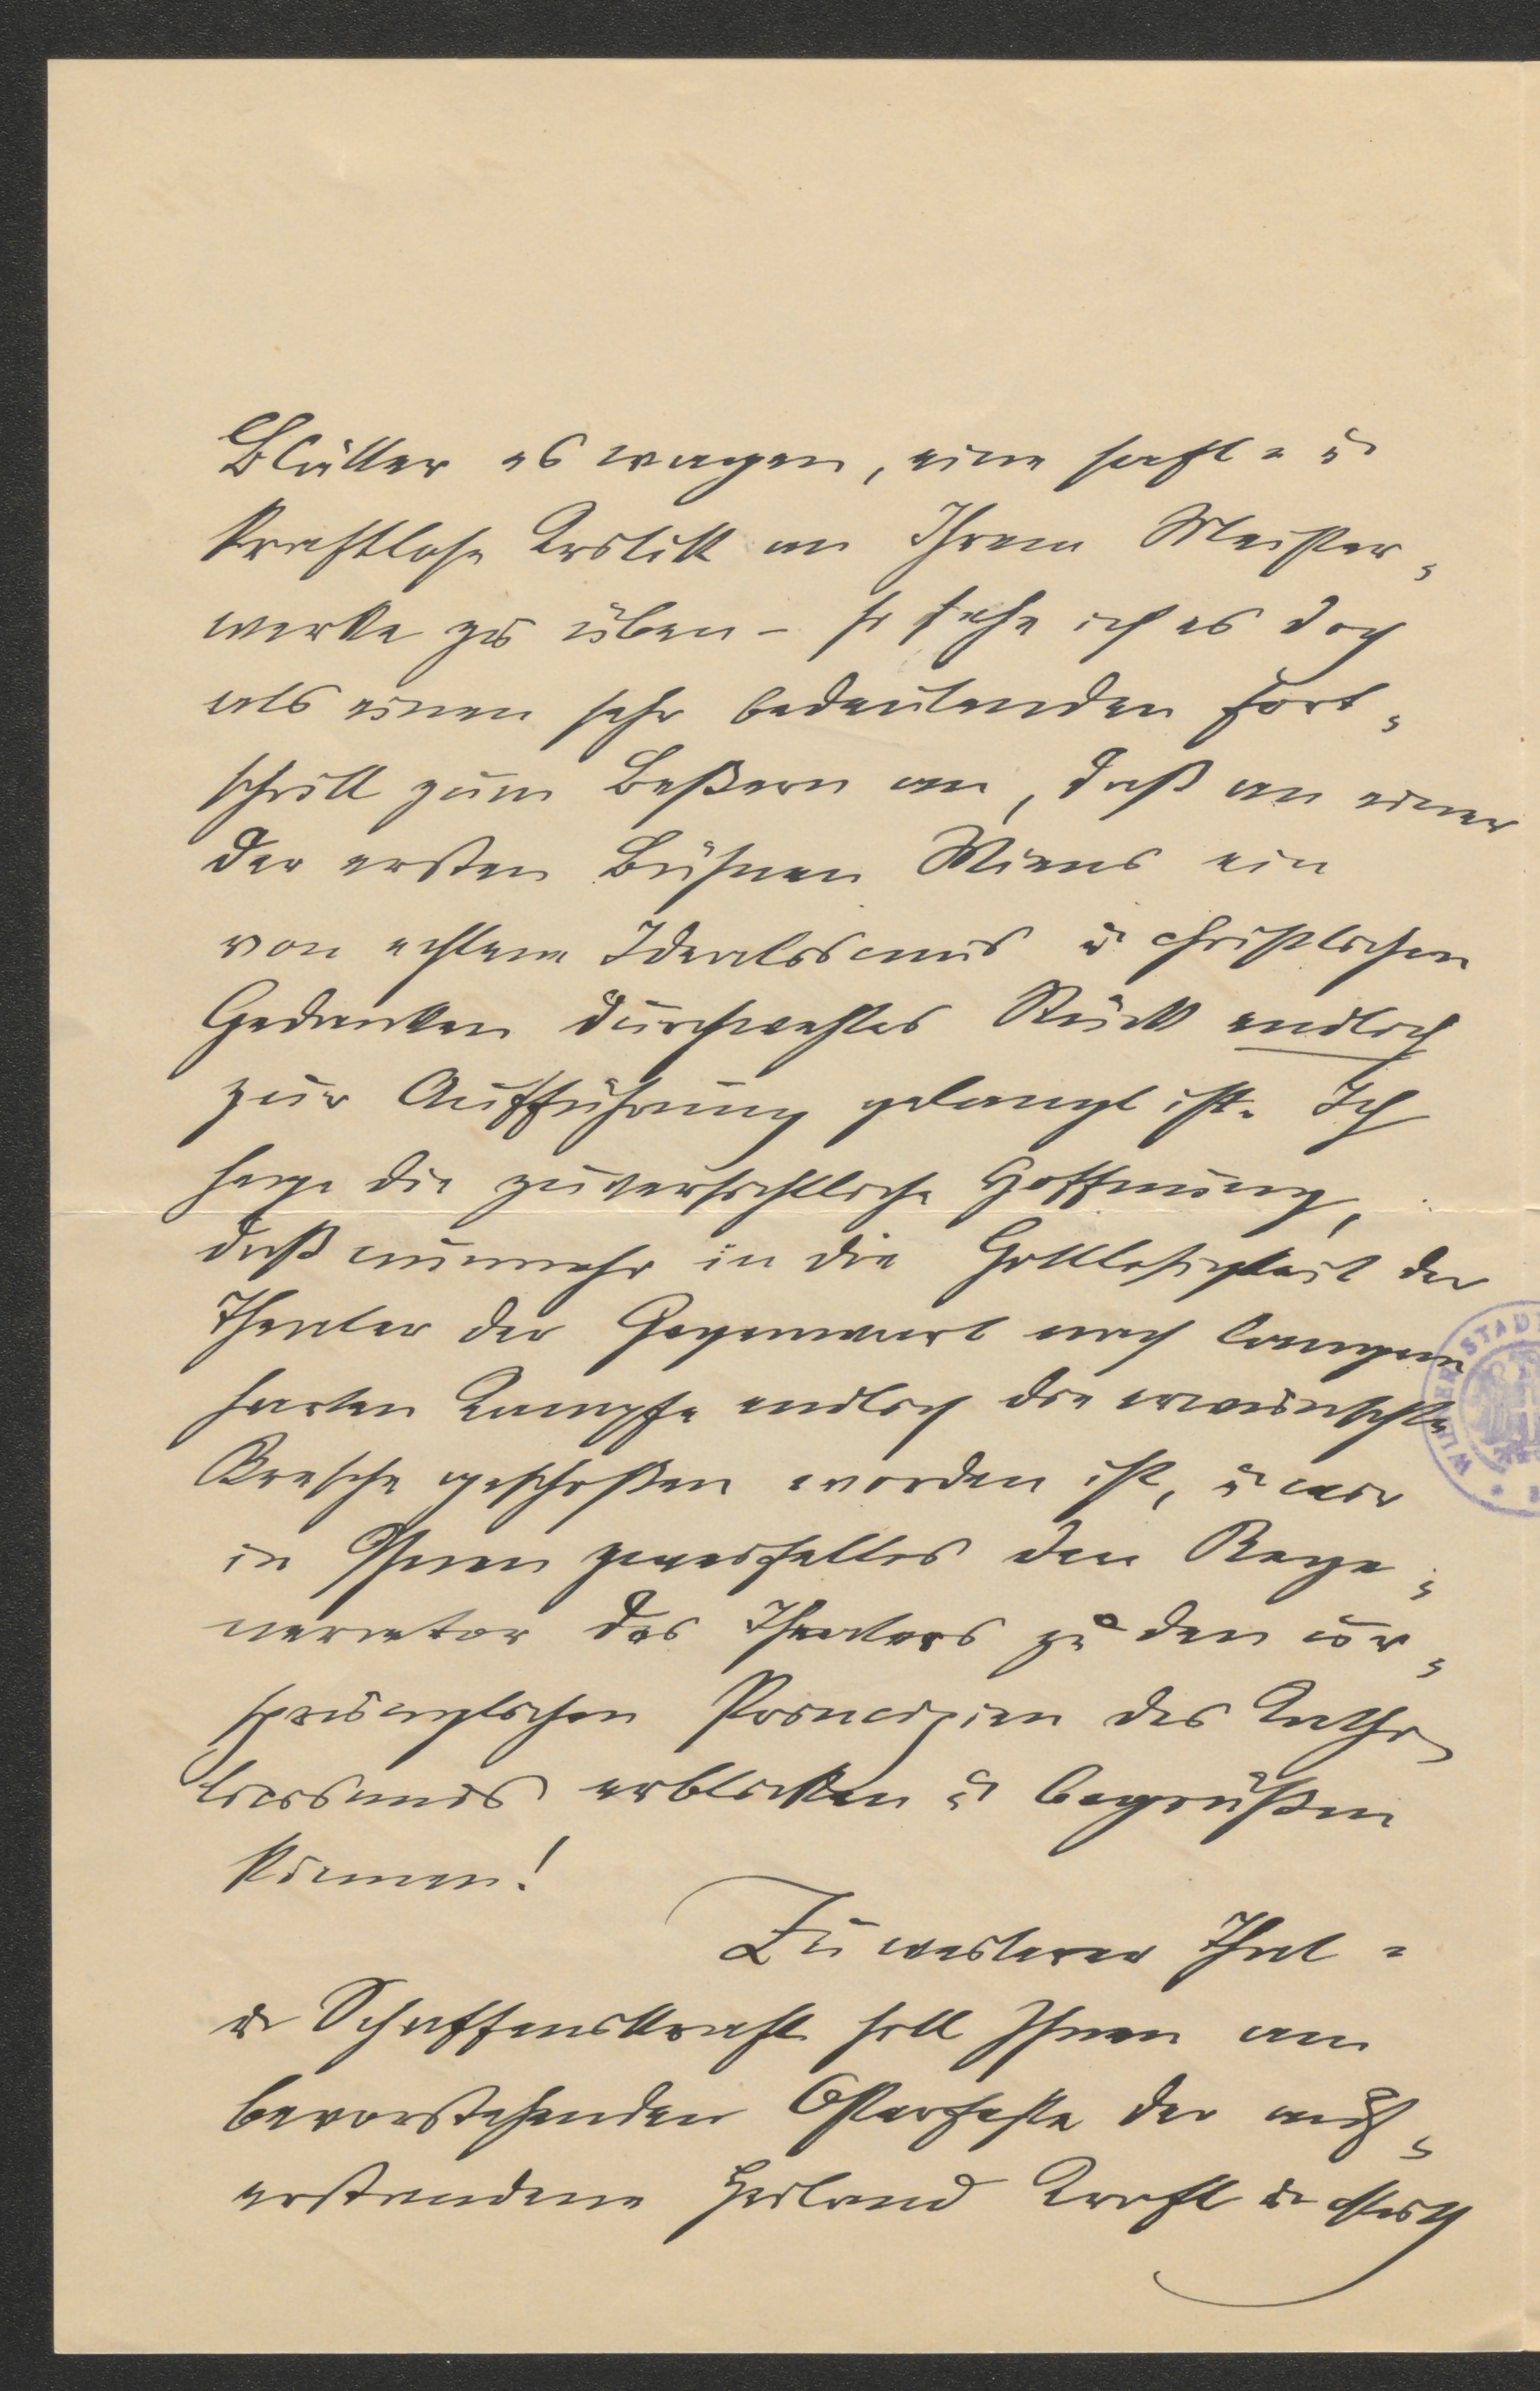 Blätter es wagen, eine saft- u
kraftlose Kritik an Ihrem Meister-
werke zu üben – so sehe ich es doch
als einen sehr bedeutenden Fort-
schritt zum Beßern an, daß an einer
der ersten Bühnen Wiens ein
von echtem Idealismus u christlichen
Gedanken durchwehtes Stück endlich
zur Aufführung gelangt ist. Ich
hege die zuversichtliche Hoffnung,
daß nunmehr in die Gottlosigkeit der
Theater der Gegenwart nach langem
harten Kampfe endlich die erwünschte
Bresche geschoßen worden ist, u wir
in Ihnen zweifellos den Rege-
nerator des Theaters zu den ur-
sprünglichen Principien des Katho
licismus erblicken u begrüßen
können!
Zu weiterer That-
u Schaffenskraft soll Ihnen am
bevorstehenden Osterfeste der auf-
erstandene Heiland Kraft u
WIENER STADT